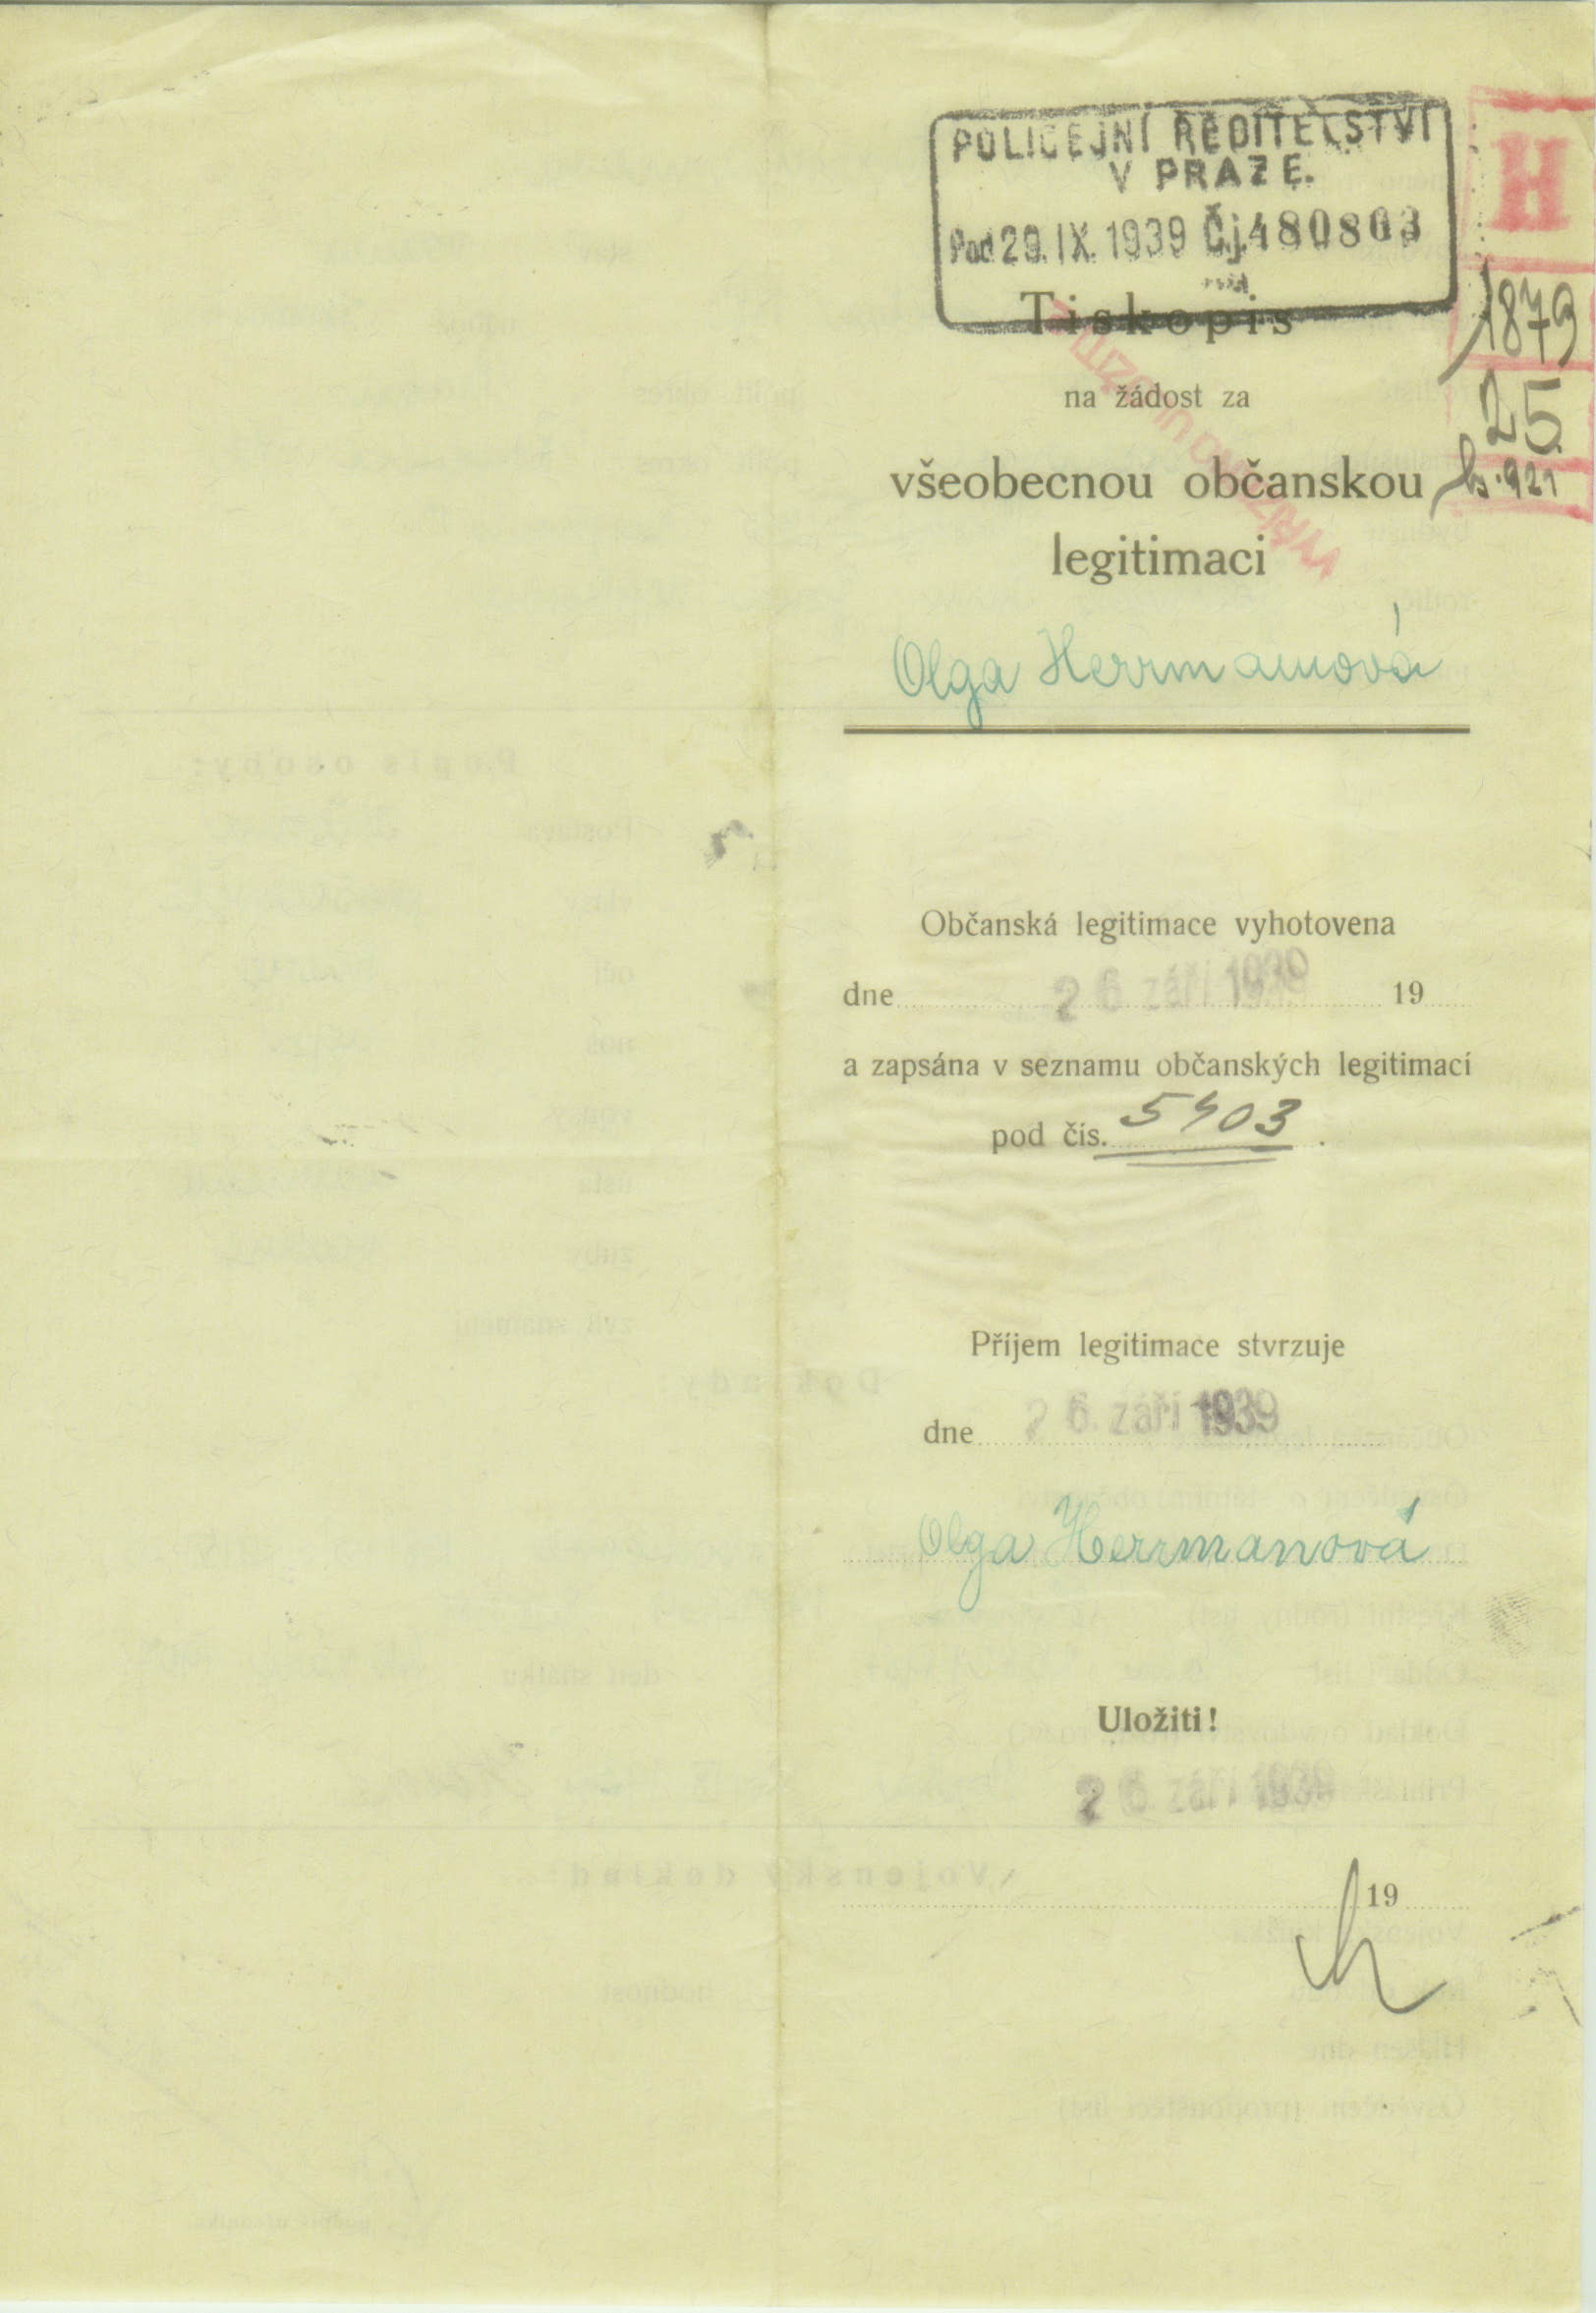 POLICEJNÍ ŘEDITELSTVÍ
V PRAZE.
Pod 29. IX. 1939 Čj. 480803
H
1879
25
921
Tiskopis
na žádost za
všeobecnou občanskou
legitimaci
Olga Herrmannová
Občanská legitimace vyhotovena
dne 26 září 1939 19
a zapsána v seznamu občanských legitimací
pod čís. 5403.
Příjem legitimace stvrzuje
dne 26. září 1939
Olga Herrmanová
Uložiti!
26 září 1939
19